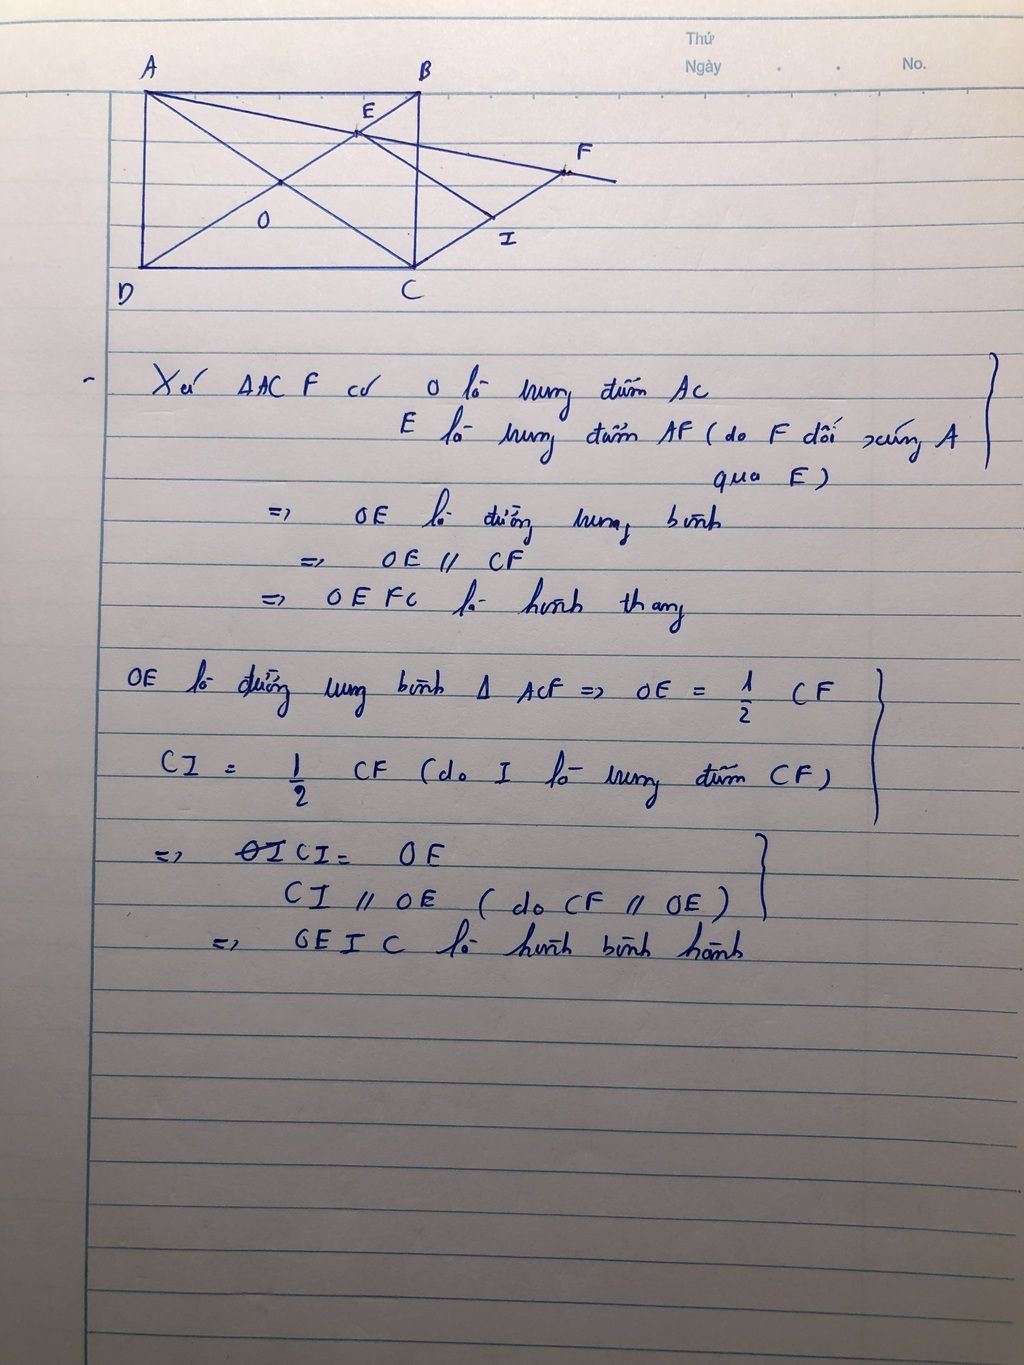 Thứ
Ngày . . No.
A B
E
F
O
I
D C
- Xét ΔACF có O là trung điểm AC
E là trung điểm AF (do F đối xứng A
qua E)
=> OE là đường trung bình
=> OE // CF
=> OEFC là hình thang
OE là đường trung bình Δ ACF => OE = 1/2 CF
CI = 1/2 CF (do I là trung điểm CF)
=> OI CI = OE
CI // OE (do CF // OE)
=> OEIC là hình bình hành